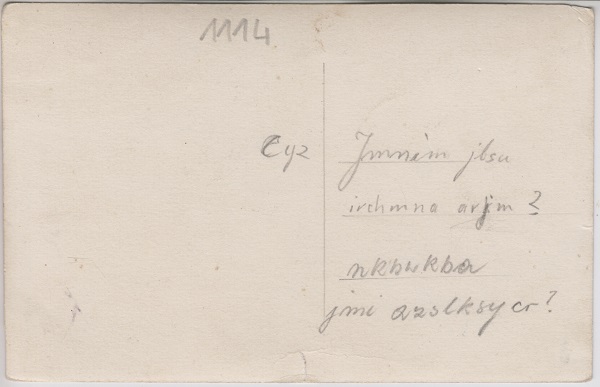 1114
Cyz
Jmnėm jlsu
irchmna arjm?
nkbukba
jmi azslksycr?